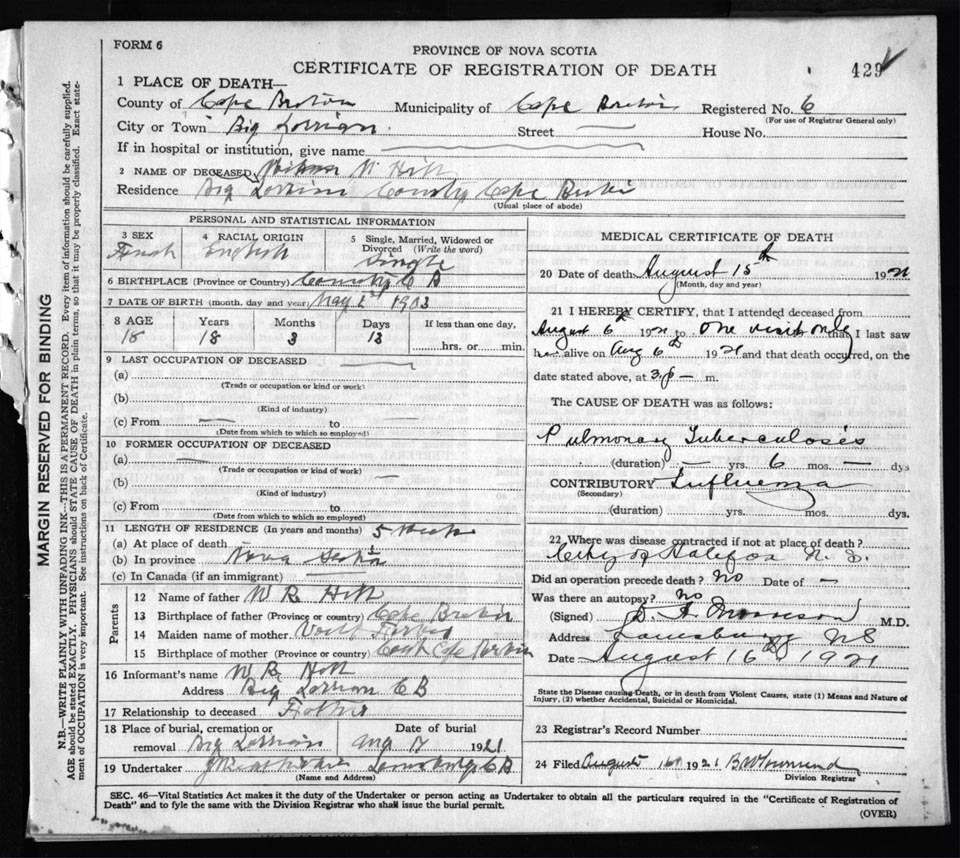 FORM 6
PROVINCE OF NOVA SCOTIA
CERTIFICATE OF REGISTRATION OF DEATH
429
1 PLACE OF DEATH—
County of Cape Breton Municipality of Cape Breton Registered No. 6
(For use of Registrar General only)
City or Town Big Lorrian Street House No.
If in hospital or institution, give name
2 NAME OF DECEASED
Residence Big Lorrian County Cape Breton
(Usual place of abode)
PERSONAL AND STATISTICAL INFORMATION
3 SEX 4 RACIAL ORIGIN English 5 Single, Married, Widowed or Divorced (Write the word) Single
6 BIRTHPLACE (Province or Country) County C B
7 DATE OF BIRTH (month, day and year) May 2nd 1903
8 AGE Years Months Days If less than one day,
18 18 3 13 hrs. or min.
9 LAST OCCUPATION OF DECEASED
(a)
(Trade or occupation or kind or work)
(b)
(Kind of industry)
(c) From — to —
(Date from which to which so employed)
10 FORMER OCCUPATION OF DECEASED
(a) —
(Trade or occupation or kind of work)
(b) —
(Kind of industry)
(c) From to
(Date from which to which so employed)
11 LENGTH OF RESIDENCE (In years and months) 5 Weeks
(a) At place of death
(b) In province Nova Scotia
(c) In Canada (if an immigrant)
Parents
12 Name of father W R
13 Birthplace of father (Province or country) Cape Breton
14 Maiden name of mother
15 Birthplace of mother (Province or country) Cape Breton
16 Informant's name W R
Address Big Lorrian C B
17 Relationship to deceased Father
18 Place of burial, cremation or removal Big Lorrian Date of burial Aug 17 1921
19 Undertaker Louisburg C B
(Name and Address)
MEDICAL CERTIFICATE OF DEATH
20 Date of death August 15th 1921
(Month, day and year)
21 I HEREBY CERTIFY, that I attended deceased from
August 6th 1921 to one visit only that I last saw
h alive on Aug 6th 1921 and that death occurred, on the
date stated above, at 3 p — m.
The CAUSE OF DEATH was as follows:
Pulmonary Tuberculosis
(duration) — yrs. 6 mos. — dys
CONTRIBUTORY Influenza
(Secondary)
(duration) yrs. mos. dys.
22 Where was disease contracted if not at place of death?
City of Halifax N. S.
Did an operation precede death? No Date of —
Was there an autopsy? No
(Signed) M.D.
Address Louisburg NS
Date August 16th 1921
State the Disease causing Death, or in death from Violent Causes, state (1) Means and Nature of
Injury, (2) whether Accidental, Suicidal or Homicidal.
23 Registrar's Record Number
24 Filed August 16th 1921 B W Townsend
Division Registrar
SEC. 46—Vital Statistics Act makes it the duty of the Undertaker or person acting as Undertaker to obtain all the particulars required in the "Certificate of Registration of
Death" and to fyle the same with the Division Registrar who shall issue the burial permit.
(OVER)
MARGIN RESERVED FOR BINDING
N.B.—WRITE PLAINLY WITH UNFADING INK—THIS IS A PERMANENT RECORD. Every item of information should be carefully supplied.
AGE should be stated EXACTLY. PHYSICIANS should STATE CAUSE OF DEATH in plain terms, so that it may be properly classified. Exact state-
ment of OCCUPATION is very important. See instructions on back of Certificate.